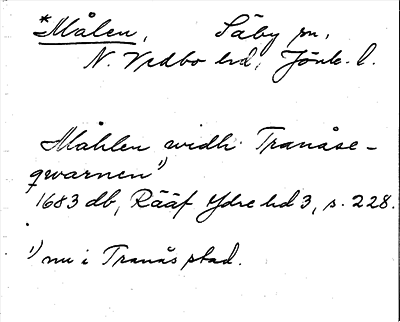 *Målen, Säby sn,
N. Vedbo hd, Jönk. l.
Måhlen widh Tranåse-
qwarnen¹)
1683 db, Rääf Ydre hd 3, s. 228.
¹) nu i Tranås stad.